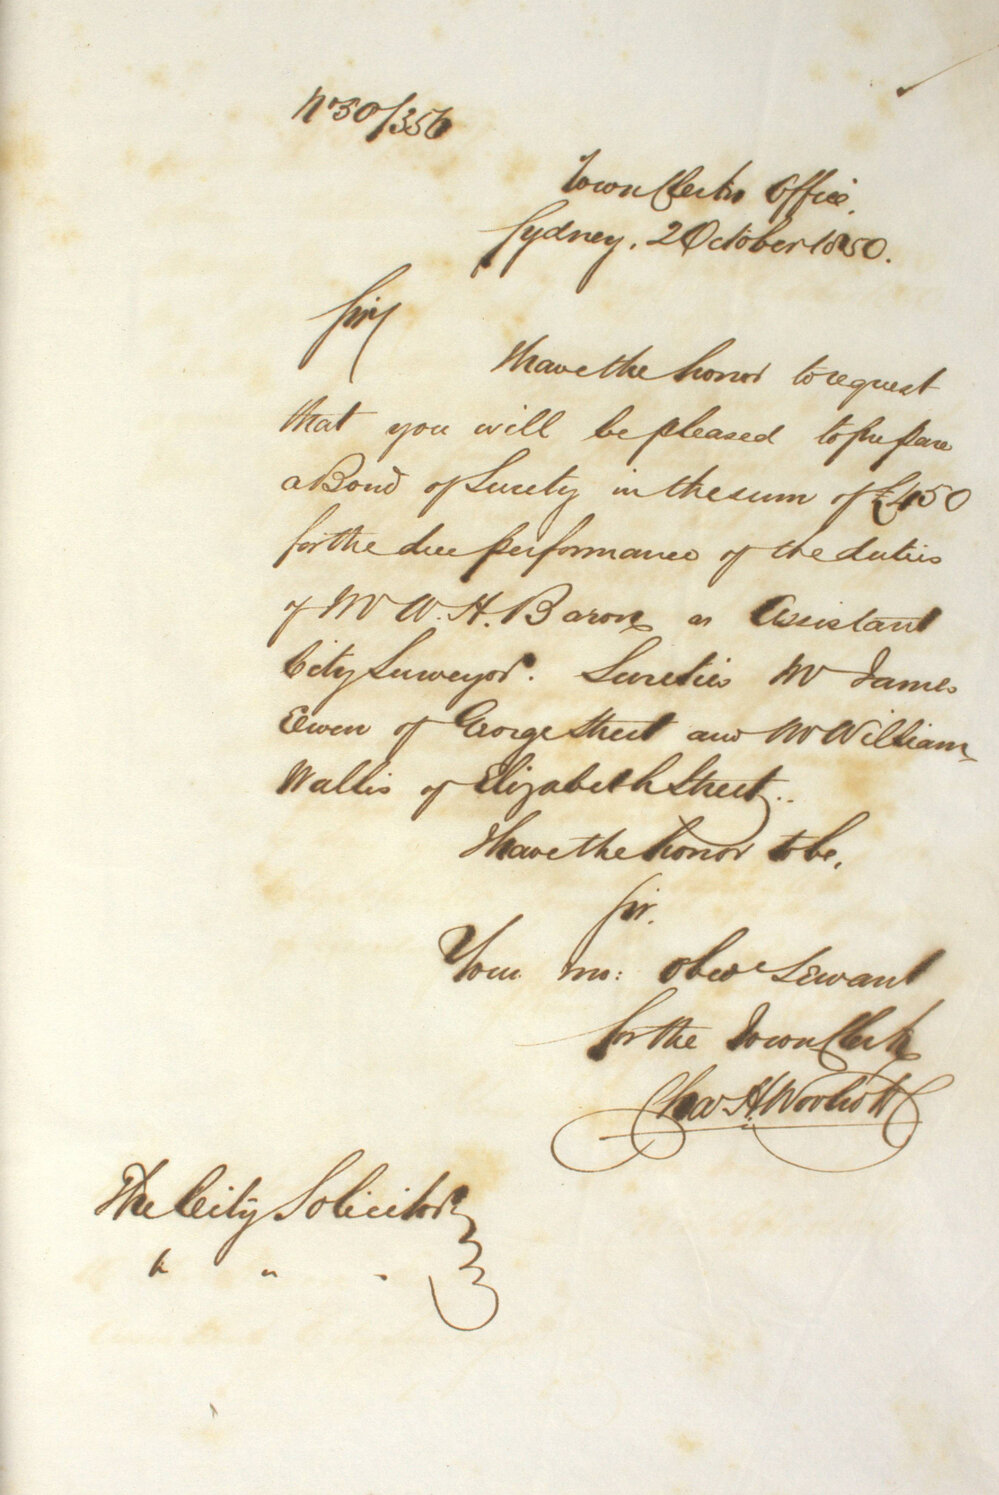 No 50/356
Town Clerks Office,
Sydney, 2 October 1850.
Sir,
I have the honor to request
that you will be pleased to prepare
a Bond of Surety in the sum of £450
for the due performance of the duties
of Mr W. H. Baron as Assistant
City Surveyor. Sureties Mr James
Ewen of George Street and Mr William
Wallis of Elizabeth Street.
I have the honor to be,
Sir.
Your mo: obed Servant
for the Town Clerk
Chas H Woolcott
The City Solicitor
" " "